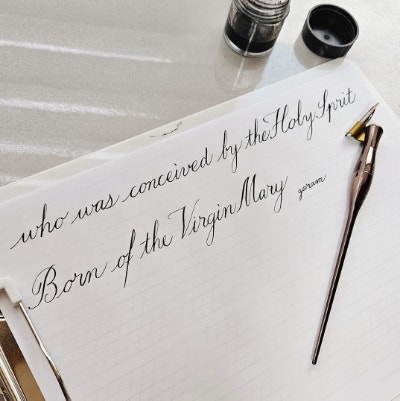 who was conceived by the Holy Sprit
Born of the Virgin Mary
garam